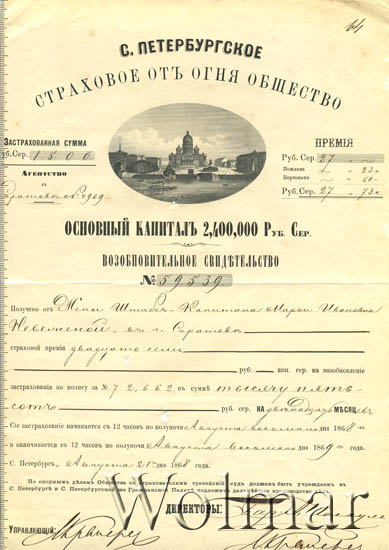 64
С. ПЕТЕРБУРГСКОЕ
СТРАХОВОЕ ОТЪ ОГНЯ ОБЩЕСТВО
ЗАСТРАХОВАННАЯ СУММА
Руб. Сер. 1500
АГЕНТСТВО
въ
Саратовѣ № 4969
ПРЕМІЯ
Руб. Сер. 27 „ „
Пошлин.
Почтовых
Руб. Сер. 27 „ 73 к
ОСНОВНЫЙ КАПИТАЛЪ 2,400,000 РУБ. СЕР.
ВОЗОБНОВИТЕЛЬНОЕ СВИДѢТЕЛЬСТВО
№ 59539
Получено отъ Жены Штабсъ-Капитана Марьи Ивановны
въ г. Саратовѣ
страховой преміи двадцать семь
руб. коп. сер. на возобновленіе
застрахованія по полису за № 72,662, въ суммѣ тысячу пять
сотъ руб. сер. НА двѣнадцать МѢСЯЦЕВЪ
Сіе застрахованіе начинается съ 12 часовъ по полуночи Августа 1868
и оканчивается въ 12 часовъ по полуночи Августа 1869 года.
С. Петербургъ, Августа 21 дня 1868 года.
По спорнымъ дѣламъ Общества со страхователями третейскій судъ долженъ быть учрежденъ въ
С. Петербургѣ и С. Петербургской Гражданской Палатѣ
ДИРЕКТОРЫ:
УПРАВЛЯЮЩІЙ:
Wolmar